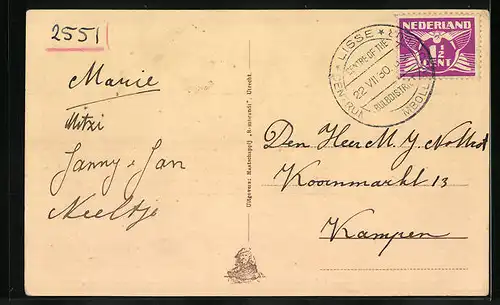 2551
Marie
Mitzi
Janny + Jan
Neeltje
Uitgevers: Maatschappij „Rembrandt", Utrecht.
LISSE
CENTRE OF THE
22 VII 30
BULBDISTRICT
NEDERLAND
1½
CENT
Den Heer M. J.
Koornmarkt 13
Kampen